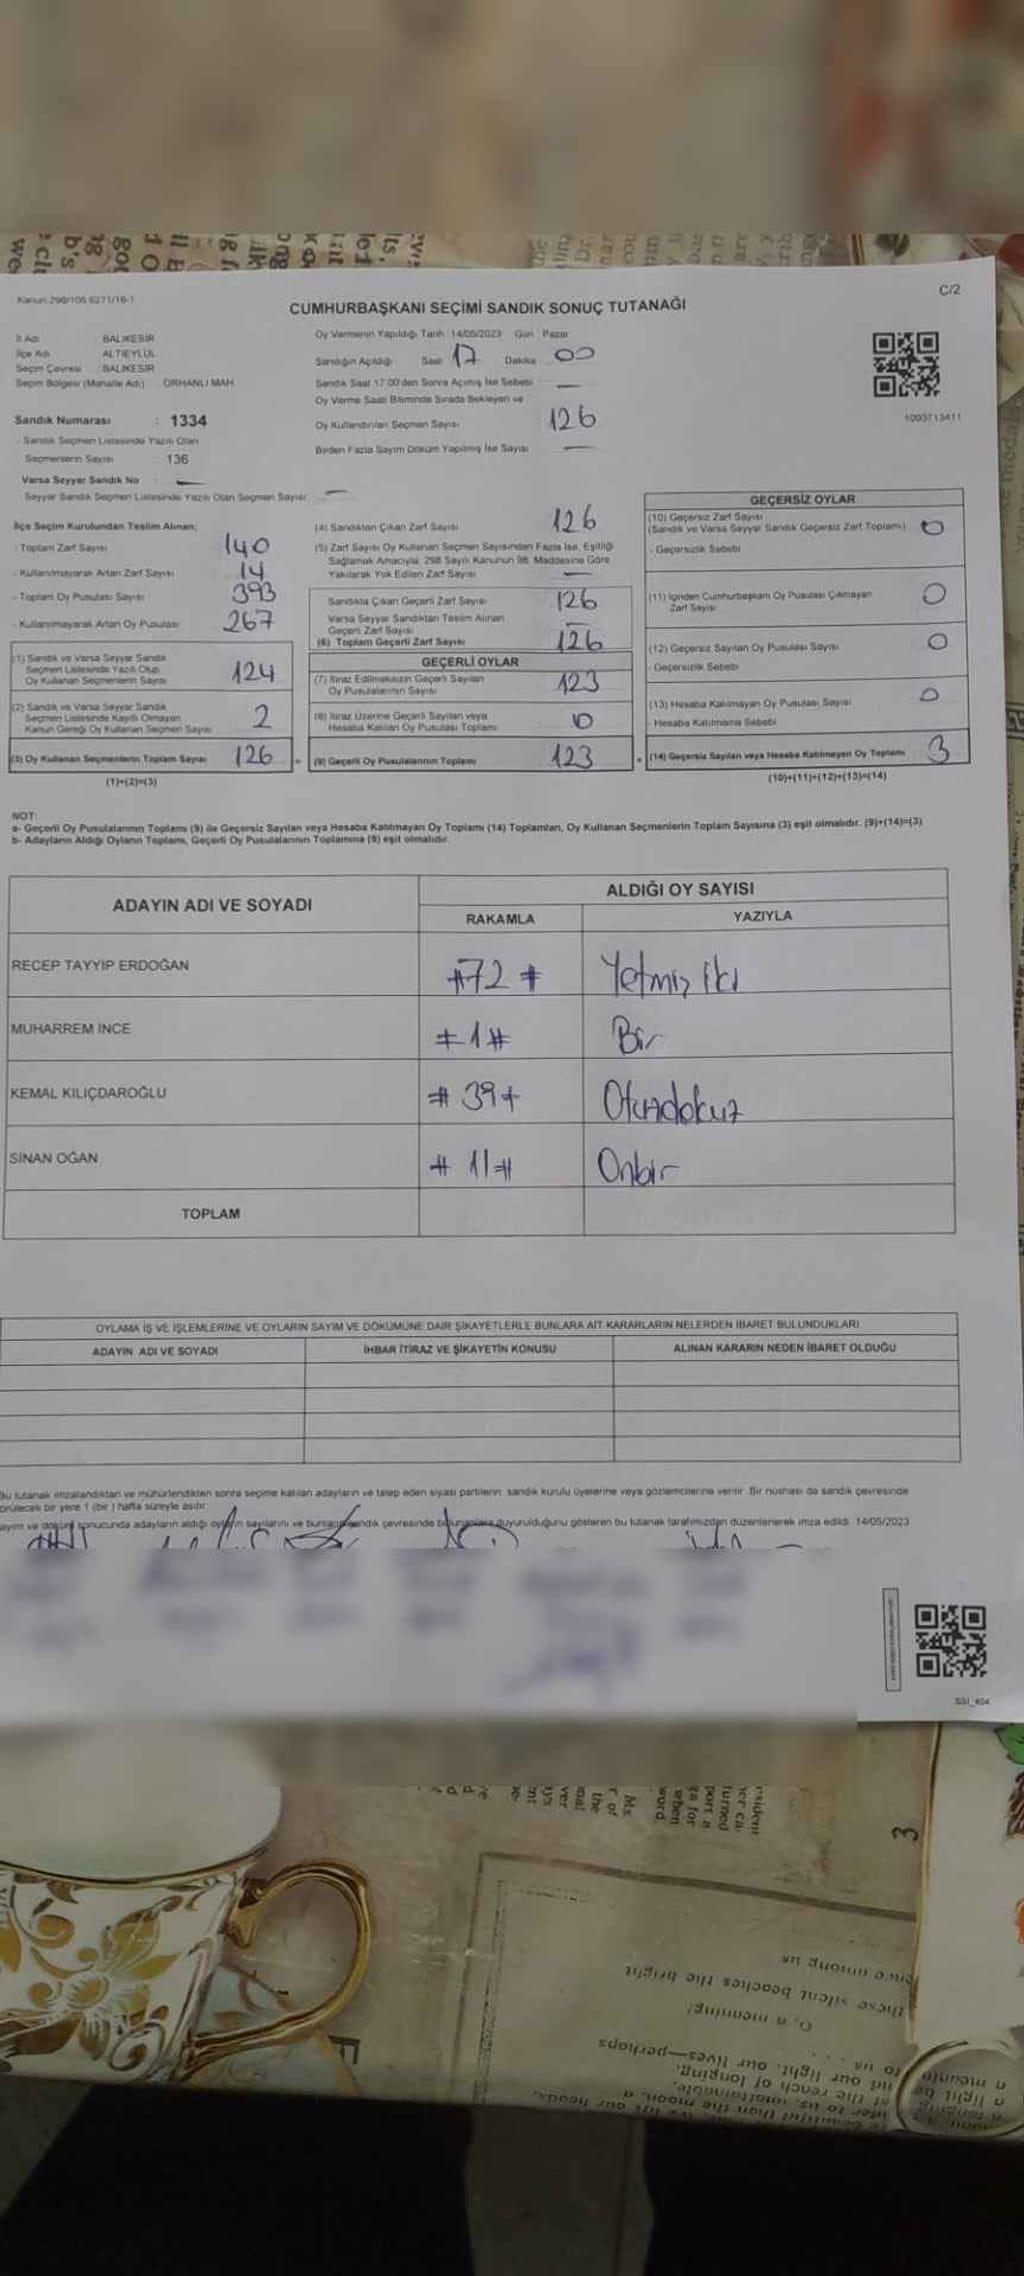 Kanun 298/105 6271/16-1
C/2
CUMHURBAŞKANI SEÇİMİ SANDIK SONUÇ TUTANAĞI
İl Adı : BALIKESİR
İlçe Adı : ALTIEYLÜL
Seçim Çevresi : BALIKESİR
Seçim Bölgesi (Mahalle Adı) : ORHANLI MAH.
Sandık Numarası : 1334
- Sandık Seçmen Listesinde Yazılı Olan
Seçmenlerin Sayısı : 136
Varsa Seyyar Sandık No : —
Seyyar Sandık Seçmen Listesinde Yazılı Olan Seçmen Sayısı: —
Oy Vermenin Yapıldığı Tarih :14/05/2023 Gün : Pazar
Sandığın Açıldığı Saat 17 Dakika 00
Sandık Saat 17:00'den Sonra Açılmış İse Sebebi : —
Oy Verme Saati Bitiminde Sırada Bekleyen ve
Oy Kullandırılan Seçmen Sayısı 126
Birden Fazla Sayım Döküm Yapılmış İse Sayısı —
1003713411
İlçe Seçim Kurulundan Teslim Alınan;
- Toplam Zarf Sayısı 140
- Kullanılmayarak Artan Zarf Sayısı 14
- Toplam Oy Pusulası Sayısı 393
- Kullanılmayarak Artan Oy Pusulası 267
(1) Sandık ve Varsa Seyyar Sandık
Seçmen Listesinde Yazılı Olup
Oy Kullanan Seçmenlerin Sayısı 124
(2) Sandık ve Varsa Seyyar Sandık
Seçmen Listesinde Kayıtlı Olmayan
Kanun Gereği Oy Kullanan Seçmen Sayısı 2
(3) Oy Kullanan Seçmenlerin Toplam Sayısı 126
(1)+(2)=(3)
(4) Sandıktan Çıkan Zarf Sayısı 126
(5) Zarf Sayısı Oy Kullanan Seçmen Sayısından Fazla İse, Eşitliği
Sağlamak Amacıyla, 298 Sayılı Kanunun 98. Maddesine Göre
Yakılarak Yok Edilen Zarf Sayısı —
Sandıkta Çıkan Geçerli Zarf Sayısı 126
Varsa Seyyar Sandıktan Teslim Alınan
Geçerli Zarf Sayısı —
(6) Toplam Geçerli Zarf Sayısı 126
GEÇERLİ OYLAR
(7) İtiraz Edilmeksizin Geçerli Sayılan
Oy Pusulalarının Sayısı 123
(8) İtiraz Üzerine Geçerli Sayılan veya
Hesaba Katılan Oy Pusulası Toplamı 0
(9) Geçerli Oy Pusulalarının Toplamı 123
GEÇERSİZ OYLAR
(10) Geçersiz Zarf Sayısı
(Sandık ve Varsa Seyyar Sandık Geçersiz Zarf Toplamı) 0
- Geçersizlik Sebebi
(11) İçinden Cumhurbaşkanı Oy Pusulası Çıkmayan
Zarf Sayısı 0
(12) Geçersiz Sayılan Oy Pusulası Sayısı 0
- Geçersizlik Sebebi
(13) Hesaba Katılmayan Oy Pusulası Sayısı 0
- Hesaba Katılmama Sebebi
(14) Geçersiz Sayılan veya Hesaba Katılmayan Oy Toplamı 3
(10)+(11)+(12)+(13)=(14)
NOT:
a- Geçerli Oy Pusulalarının Toplamı (9) ile Geçersiz Sayılan veya Hesaba Katılmayan Oy Toplamı (14) Toplamları, Oy Kullanan Seçmenlerin Toplam Sayısına (3) eşit olmalıdır. (9)+(14)=(3)
b- Adayların Aldığı Oyların Toplamı, Geçerli Oy Pusulalarının Toplamına (9) eşit olmalıdır.
ADAYIN ADI VE SOYADI
ALDIĞI OY SAYISI
RAKAMLA YAZIYLA
RECEP TAYYİP ERDOĞAN #72# Yetmiş iki
MUHARREM İNCE #1# Bir
KEMAL KILIÇDAROĞLU #39# Otuzdokuz
SİNAN OĞAN #11# Onbir
TOPLAM
OYLAMA İŞ VE İŞLEMLERİNE VE OYLARIN SAYIM VE DÖKÜMÜNE DAİR ŞİKAYETLERLE BUNLARA AİT KARARLARIN NELERDEN İBARET BULUNDUKLARI
ADAYIN ADI VE SOYADI İHBAR İTİRAZ VE ŞİKAYETİN KONUSU ALINAN KARARIN NEDEN İBARET OLDUĞU
Bu tutanak imzalandıktan ve mühürlendikten sonra seçime katılan adayların ve talep eden siyasi partilerin sandık kurulu üyelerine veya gözlemcilerine verilir. Bir nüshası da sandık çevresinde
görülecek bir yere 1 (bir) hafta süreyle asılır.
ayım ve döküm sonucunda adayların aldığı oyların sayılarını ve bunların sandık çevresinde bulunanlara duyurulduğunu gösteren bu tutanak tarafımızdan düzenlenerek imza edildi. 14/05/2023
3
ence among us
these silent beaches the bright
O, a moaning!
to us . . .
nd our light, our lives—perhaps
at the reach of longing.